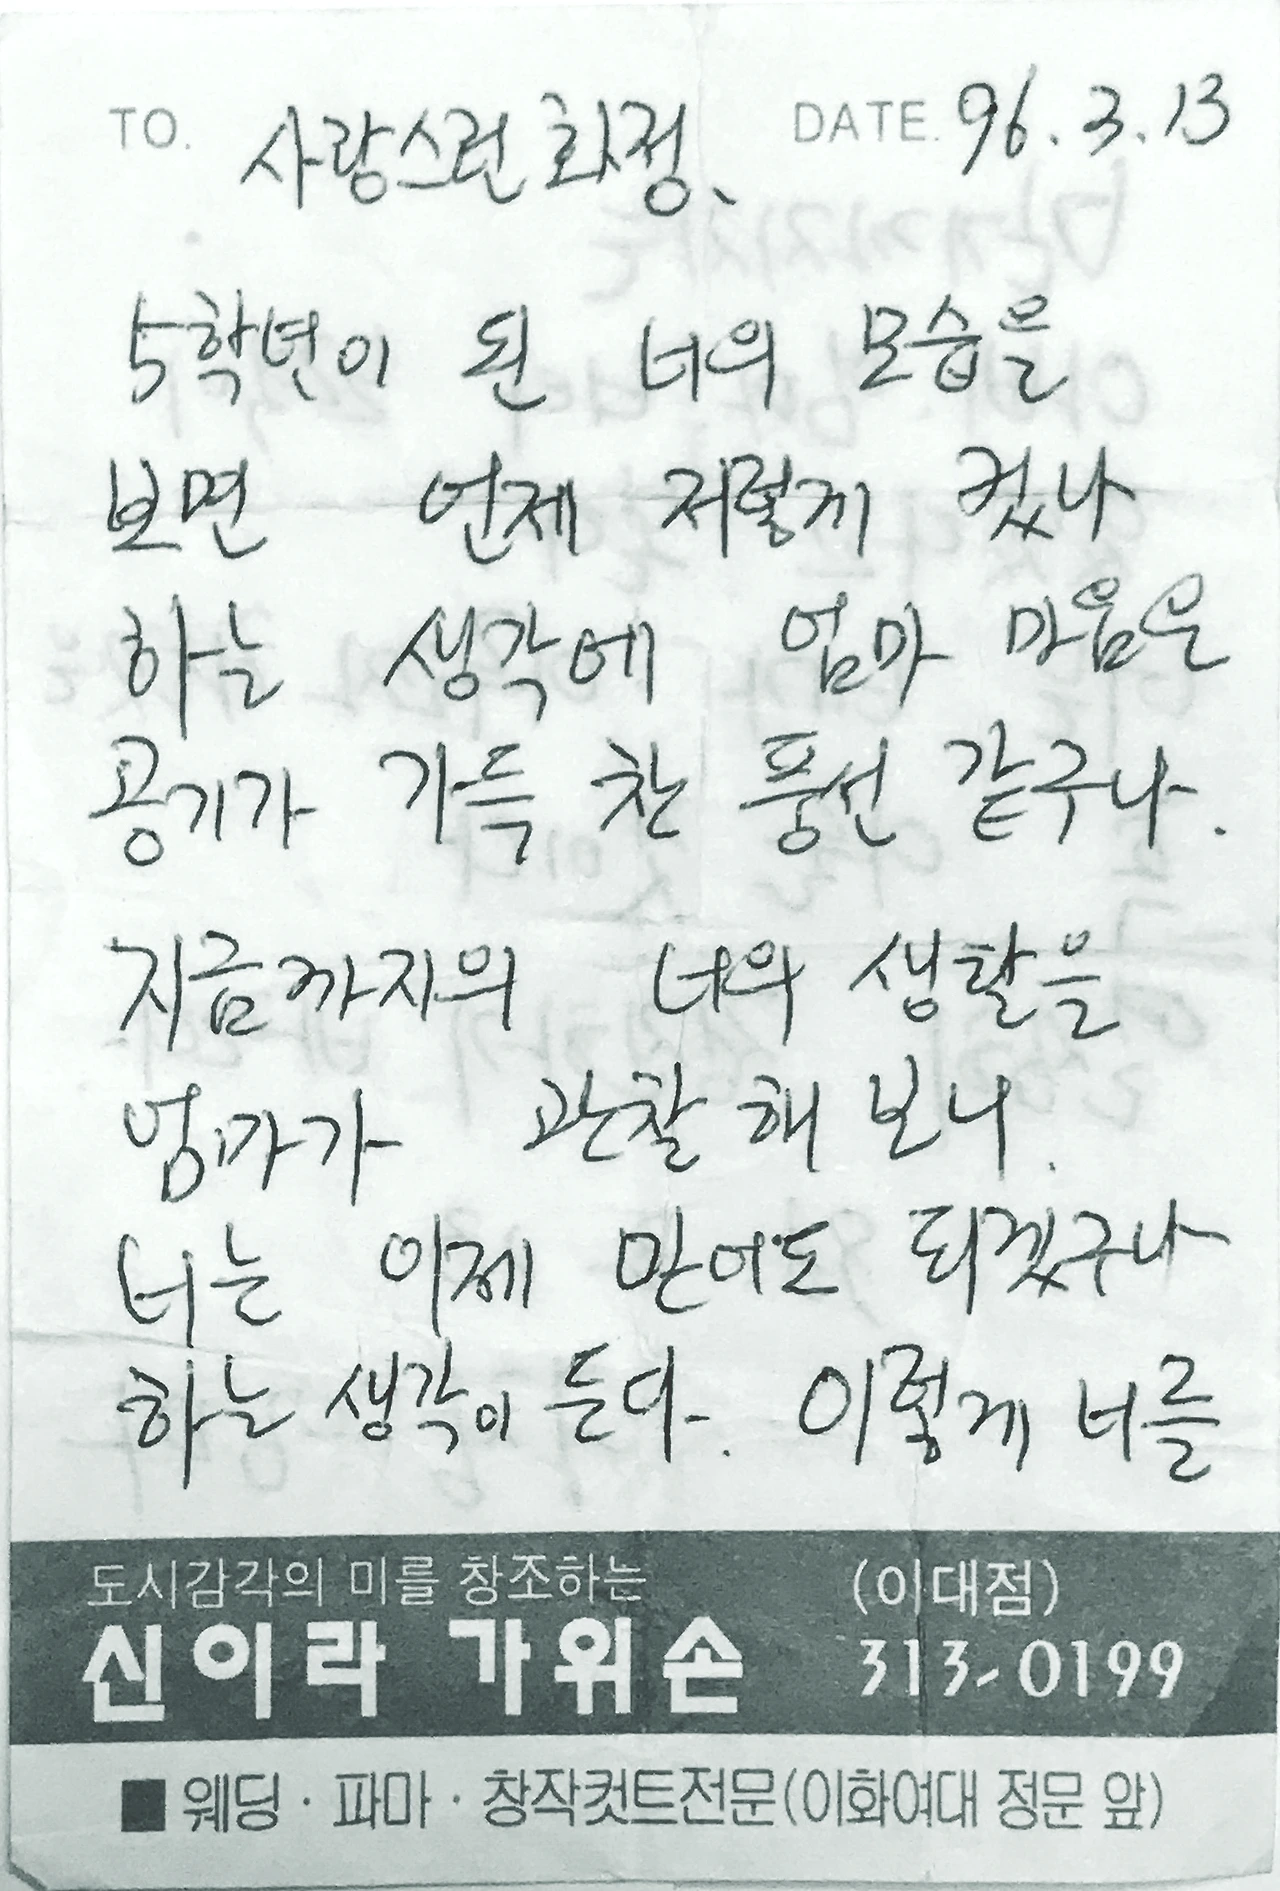 TO. 사랑스런 화정、 DATE. 96. 3. 13
5학년이 된 너의 모습을
보면 언제 저렇게 컸나
하는 생각에 엄마 마음은
공기가 가득 찬 풍선 같구나.
지금까지의 너의 생활을
엄마가 관찰해 보니.
너는 이제 믿어도 되겠구나
하는 생각이 든다. 이렇게 너를
도시감각의 미를 창조하는 (이대점)
신이락 가위손 313-0199
■ 웨딩 · 파마 · 창작컷트전문(이화여대 정문 앞)